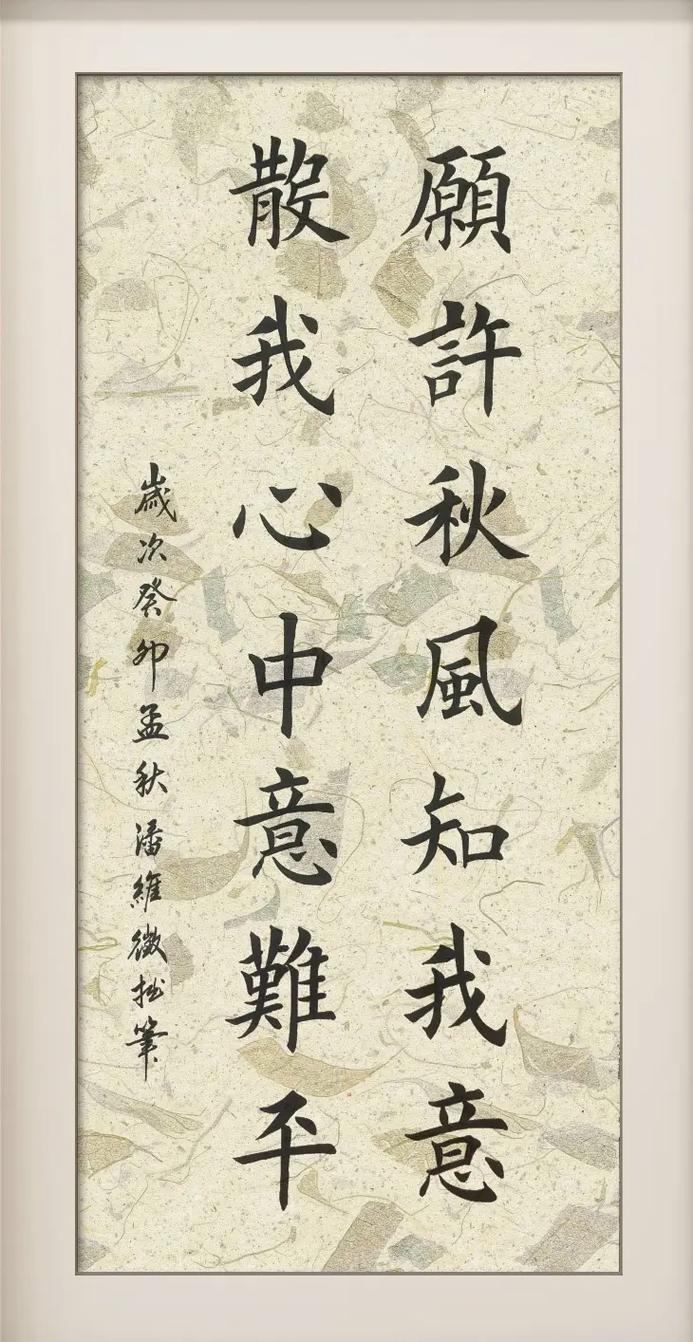 願許秋風知我意
散我心中意難平
歲次癸卯孟秋潘維微拙筆